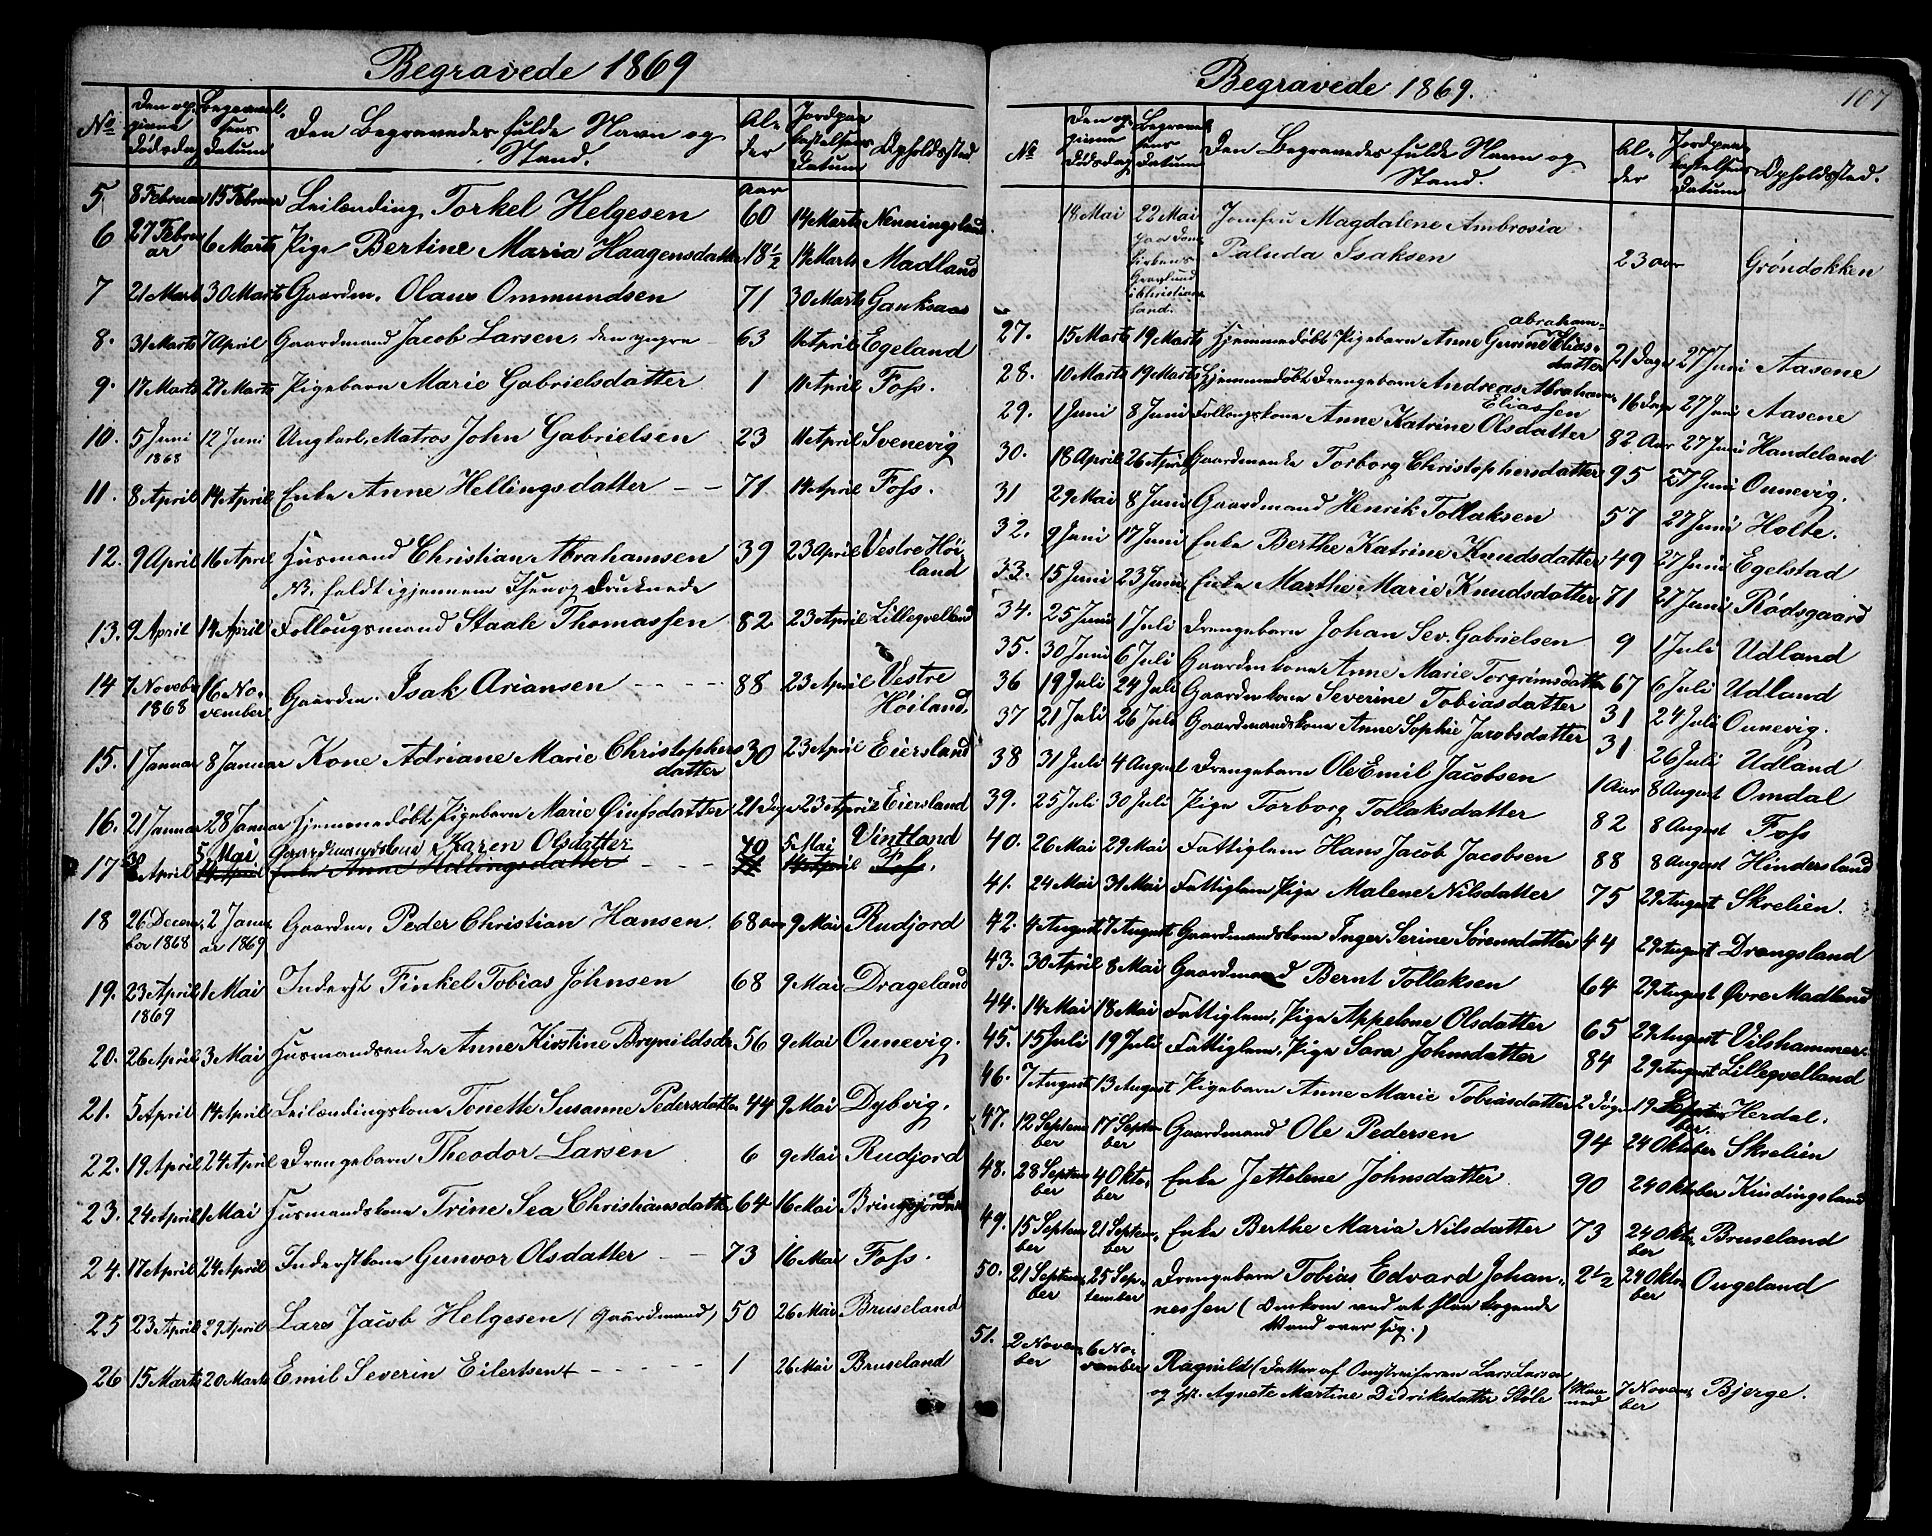 Begravede 1869
No
Den op-
givne
Dødsdag
Begravel-
sens
Datum
Den Begravedes fulde Navn og
Stand.
Al-
der
Jordpaa-
kastelsens
Datum
Opholdssted.
Aar
5 8 Februar 15 Februar Leilænding Torkel Helgesen 60 14 Marts Nenningsland
6 27 Febru
ar 6 Marts Pige Bertine Maria Haagensdatter 18 1/2 14 Marts Madland
7 21 Marts 30 Marts Gaardm. Olaus Ommundsen 71 30 Marts Gauksaas
8. 31 Marts 7 April Gaardmand Jacob Larsen, den yngre 63 11 April Egeland
9. 17 Marts 27 Marts Pigebarn Marie Gabrielsdatter 1 11 April Foss.
10. 5 Juni
1868 12 Juni Ungkarl, Matros John Gabrielsen 23 11 April Svenevig
11. 8 April 14 April Enke Anne Hellingsdatter — — 71 14 April Foss.
12. 9 April 16 April Husmand Christian Abrahamsen 39 23 April Vestre Høi-
land
NB. faldt igjennem Isen og druknede
13. 9 April 14 April Follougsmand Staale Thomassen 82 23 April Lillegvelland
14 7 Novebr
1868 16 No-
vember Gaardm. Isak Ariansen - - - - 88 23 April Vestre
Høiland
15. 1 Januar 8 Januar Kone Adriane Marie Christophers
datter 30 23 April Eiersland
16. 21 Januar 28 Januar Hjemmedøbt Pigebarn Marie Øiufsdatter 21 Dage 23 April Eiersland
5 Mai Gaardmandskone Karen Olsdatter 70 5 Mai Vintland
17 April 14 April Enke Anne Hellingsdatter - - - 71 14 April Foss.
18 26 Decem
ber 1868 2 Janu
ar 1869 Gaardm. Peder Christian Hansen. 68 aar 9 Mai Rudjord
19. 23 April
1869 1 Mai Inderst Tinkel Tobias Johnsen 68 9 Mai Drageland
20. 26 April 3 Mai Husmandsenke Anne Kirstine Brynildsdr 56 9 Mai Ounevig.
21. 5 April 14 April Leilændingskone Tonette Susanne Pedersdatter 44 9 Mai Dybvig.
22. 19 April 24 April Drengebarn Theodor Larsen 6 9 Mai Rudjord
23. 24 April 1 Mai Husmandskone Trine Sea Christiansdatter 64 16 Mai Bringsjorden
24. 17 April 24 April Inderstkone Gunvor Olsdatter - - 73 16 Mai Foss.
25 23 April 29 April Lars Jacob Helgesen (Gaardmand) 50 26 Mai Bruseland
26 15 Marts 20 Marts Emil Severin Eilertsen - - - - 1 26 Mai Bruseland
Begravede 1869.
107
No
Den op-
givne
Dødsdag
Begravel-
sens
Datum
Den Begravedes fulde Navn og
Stand.
Al-
der
Jordpaa-
kastelsens
Datum
Opholdssted.
18 Mai 22 Mai Jomfru Magdalene Ambrosia
paa Dom
kirkens
Gravlund
i Christian
sand.
Paluda Isaksen 23 aar Grøndokken
27. 15 Marts 19 Marts Hjemmedøbt Pigebarn Anne Gurine Elias-
abraham-
datter 21 Dage 27 Juni Aasene
28. 10 Marts 19 Marts Hjemmedøbt Drengebarn Andreas Abraham
Eliassen 16 Dage 27 Juni Aasene
29. 1 Juni 8 Juni Follougskone Anne Katrine Olsdatter 82 Aar 27 Juni Handeland
30. 18 April 26 April Gaardmenke Torborg Christophersdatter 95 27 Juni Ounevig.
31 29 Mai 8 Juni Gaardmand Henrik Tollaksen 57 27 Juni Holte.
32. 9 Juni 17 Juni Enke Berthe Katrine Knudsdatter 49 27 Juni Egelstad
33. 15 Juni 23 Juni Enke Marthe Marie Knudsdatter 71 27 Juni Rødsgaard
34. 25 Juni 1 Juli Drengebarn Johan Sev. Gabrielsen 9 1 Juli Udland
35. 30 Juni 6 Juli Gaardmkone Anne Marie Torgrimsdatter 67 6 Juli Udland
36 19 Juli 24 Juli Gaardmkone Severine Tobiasdatter 31 24 Juli Ounevig.
37 21 Juli 26 Juli Gaardmandskone Anne Sophie Jacobsdatter 31 26 Juli Udland
38 31 Juli 4 August Drengebarn Ole Emil Jacobsen 1 Aar 8 August Omdal
39. 25 Juli 30 Juli Pige Torborg Tollaksdatter 82 8 August Foss
40. 26 Mai 29 Mai Fattiglem Hans Jacob Jacobsen 88 8 August Hindersland
41. 24 Mai 31 Mai Fattiglem, Pige Malene Nilsdatter 75 29 August Skrelien.
42. 4 August 7 August Gaardmandskone Inger Serine Sørensdatter 44 29 August Drangsland
43. 30 April 8 Mai Gaardmand Bernt Tollaksen 64 29 August Øvre Madland
44. 14 Mai 18 Mai Fattiglem, Pige Appelone Olsdatter 65 29 August Vilshammer
45. 15 Juli 19 Juli Fattiglem, Pige Sara Johnsdatter 84 29 August Lillegvelland
46. 7 August 13 August Pigebarn Anne Marie Tobiasdatter 2 Døgn 19 Septem
ber. Herdal.
47. 12 Septem
ber 17 Septm
ber Gaardmand Ole Pedersen 94 24 Oktober Skrelien
48. 28 Septem
ber 4 Okto-
ber Enke Jettelene Johnsdatter 90 24 Oktober Kindingsland
49. 15 Septem
ber 21 Septem-
ber Enke Berthe Maria Nilsdatter 73 24 Okto-
ber Bruseland
50. 21 Septem
ber 25 Sep-
tember Drengebarn Tobias Edvard Johan-
nessen (Omkom ved at slaa kogende
Vand over sig.) 2 1/2 24 Okto
ber Ougeland
51. 2 Novem
ber 6 No-
vember Ragnild (Datter af Omstreiferen Lars Larsen
og Agnete Martine Didriksdatter Støle 1 Maa-
ned 7 Novem
ber Bjerge.